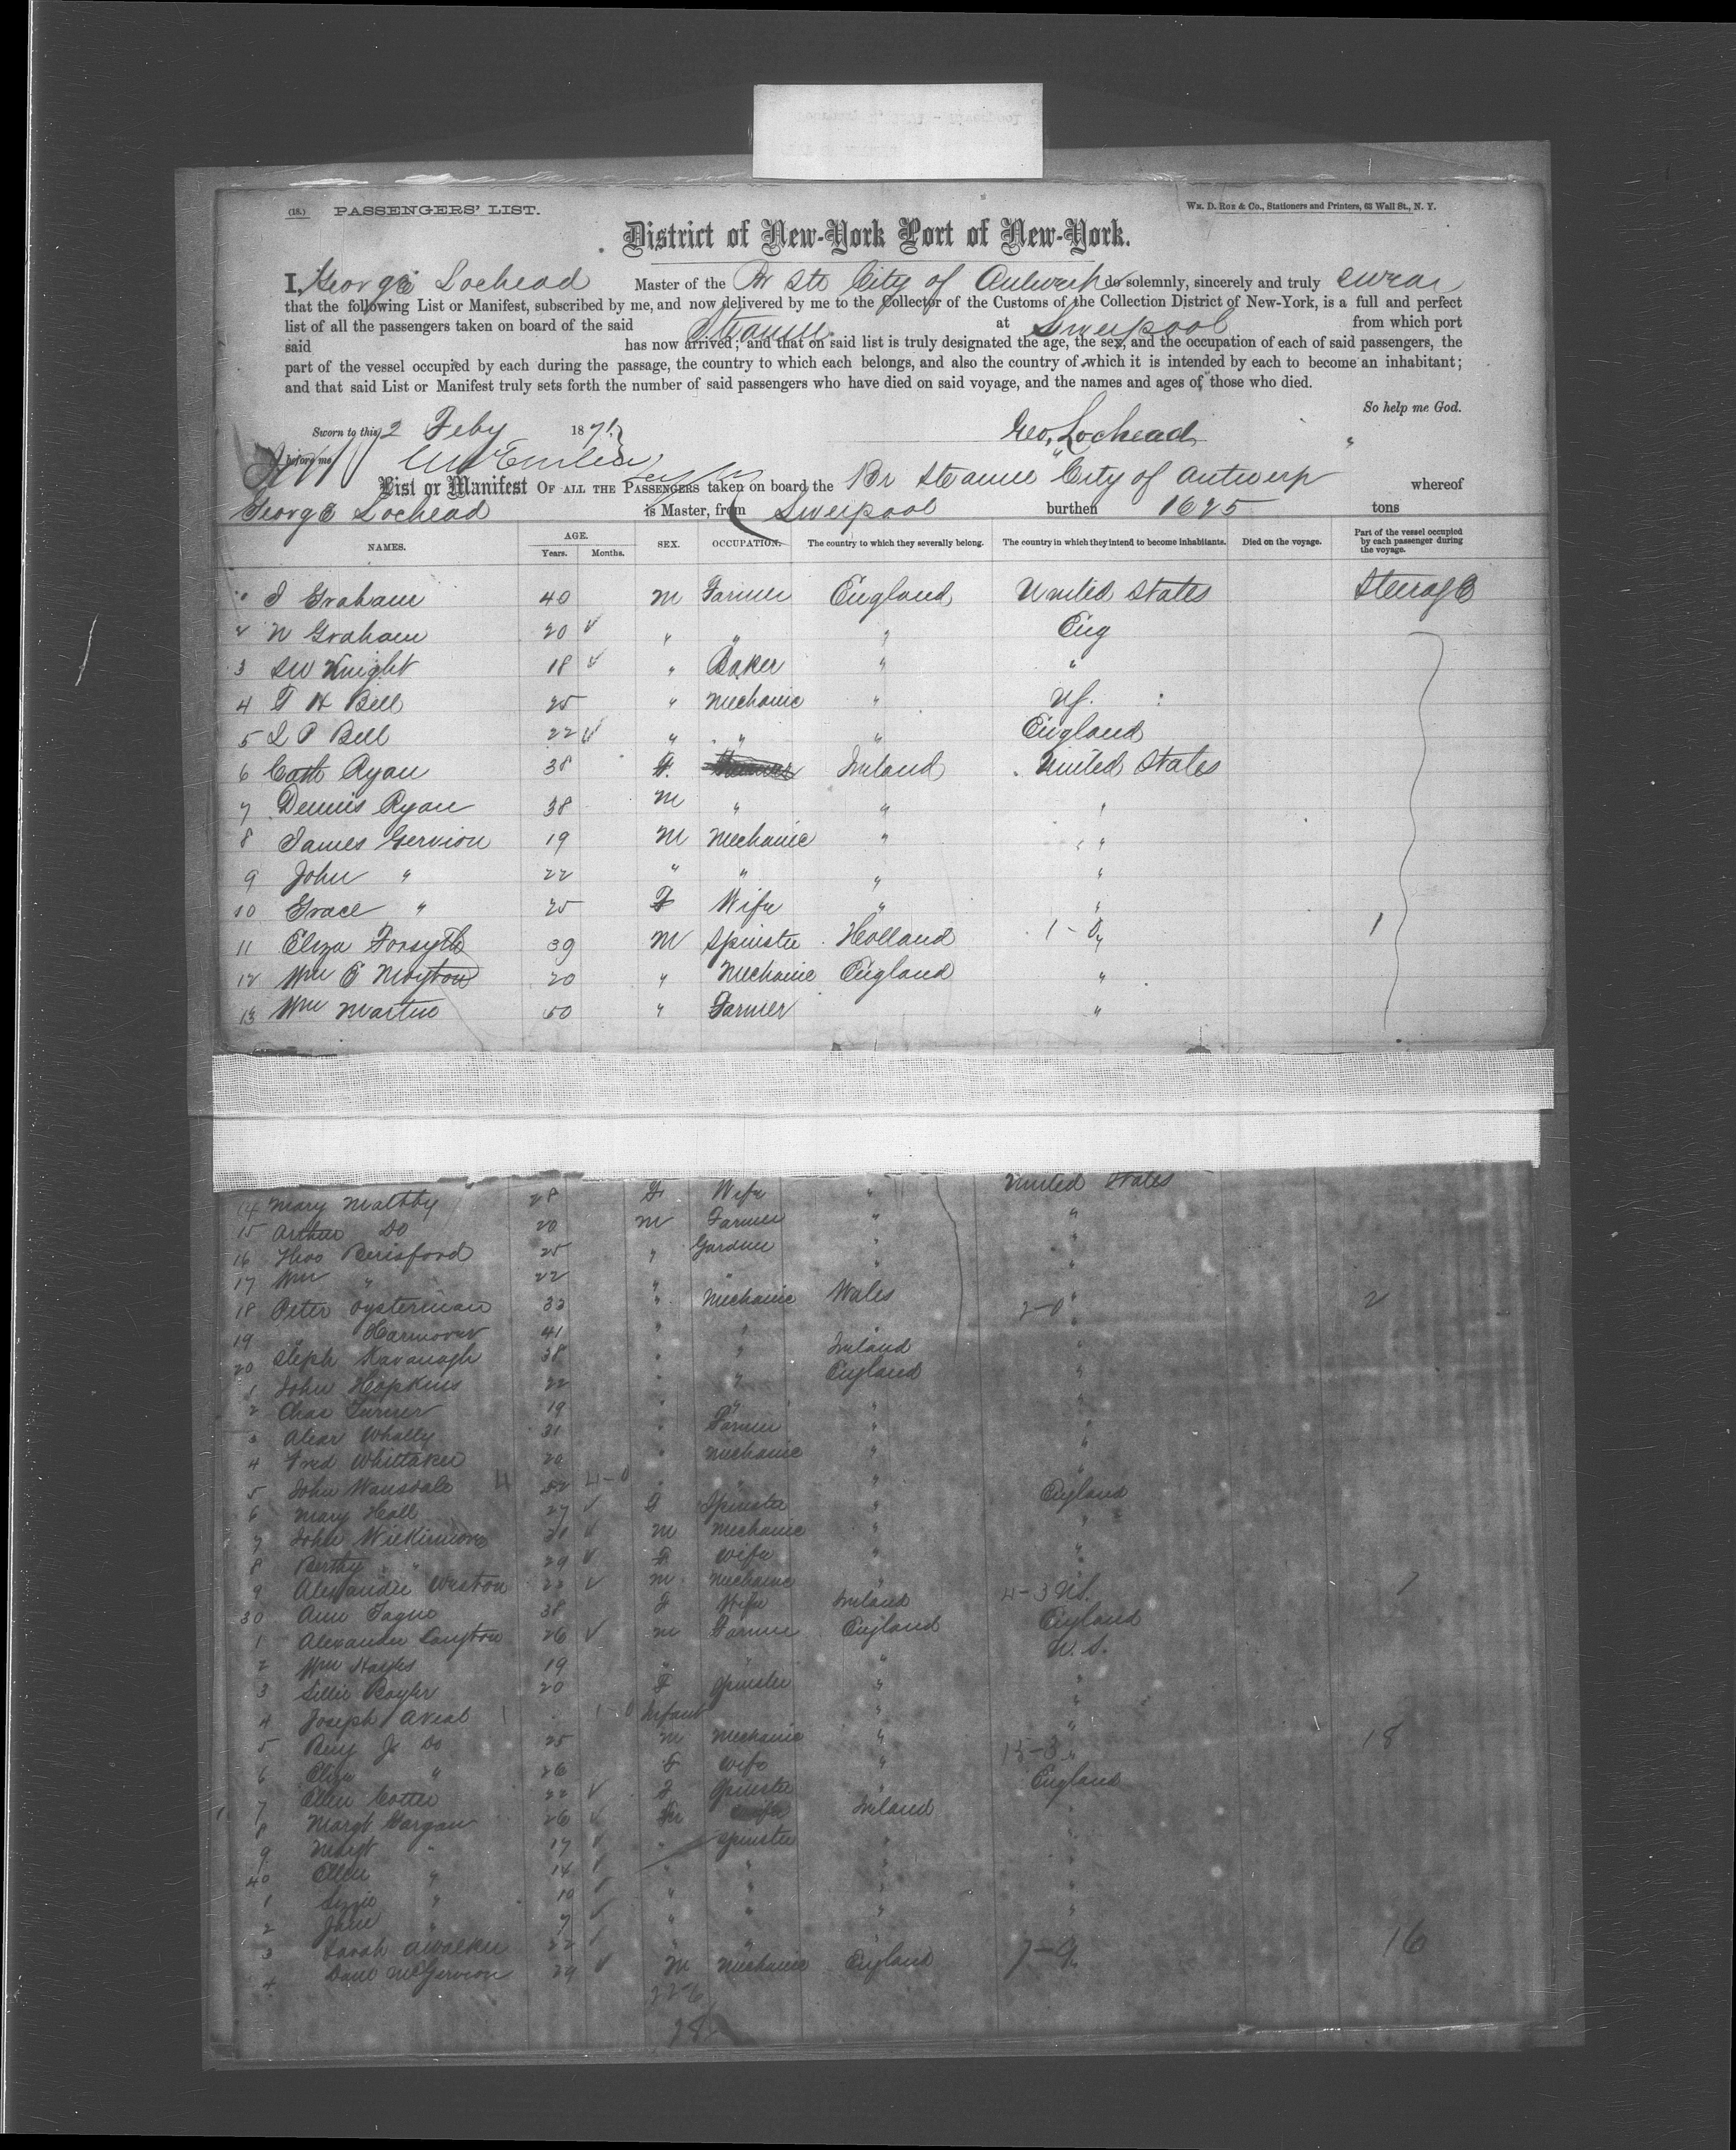 (18.) PASSENGERS' LIST. Wm. D. Roe & Co., Stationers and Printers, 63 Wall St., N. Y.
District of New-York Port of New-York.
I, George Lochead Master of the Br Str City of Antwerp do solemnly, sincerely and truly swear
that the following List or Manifest, subscribed by me, and now delivered by me to the Collector of the Customs of the Collection District of New-York, is a full and perfect
list of all the passengers taken on board of the said Steamer at Liverpool from which port
said has now arrived; and that on said list is truly designated the age, the sex, and the occupation of each of said passengers, the
part of the vessel occupied by each during the passage, the country to which each belongs, and also the country of which it is intended by each to become an inhabitant;
and that said List or Manifest truly sets forth the number of said passengers who have died on said voyage, and the names and ages of those who died.
So help me God.
Sworn to this 2 Feby 1871 Geo, Lochead
before me
List or Manifest OF ALL THE PASSENGERS taken on board the Br Steamer City of Antwerp whereof
George Lochead is Master, from Liverpool burthen 1625 tons
NAMES. AGE. Years. Months. SEX. OCCUPATION. The country to which they severally belong. The country in which they intend to become inhabitants. Died on the voyage. Part of the vessel occupied by each passenger during the voyage.
J Graham 40 M Farmer England United States Steerage
2 N Graham 20 " " " Eng
3 SW Knight 18 " Baker " "
4 T H Bell 25 " Mechanic " US.
5 L P Bell 22 " " " England
6 Cath Ryan 38 F. Ireland United States
7 Dennis Ryan 38 M " " "
8 James Gervion 19 M Mechanic " "
9 John " 22 " " " "
10 Grace " 25 F Wife " "
11 Eliza Forsyth 39 M Spinster Holland 1-0 " 1
12 Wm E Moyton 20 " Mechanic England "
13 Wm Martin 50 " Farmer "
14 Mary Maltby 28 F Wife " United States
15 Arthur Do 20 M Farmer " "
16 Thos Berisford 25 " Gardner " "
17 Wm " 22 " " " "
18 Peter Oysterman 33 " Mechanic Wales 2-0 " 2
19 " Harmover 41 " " "
20 Steph Kavanagh 38 " " Ireland "
1 John Hopkins 22 " " England "
2 Chas Turner 19 " " " "
3 Alear Whally 31 " Farmer " "
4 Fred Whittaker 20 " Mechanic " "
5 John Wansdale 4 52 4-0 " " " England
6 Mary Hall 27 F Spinster " "
7 John Wilkinson 31 M Mechanic "
8 Betsy " 29 F Wife " "
9 Alexander Weston 22 M Mechanic " 4-3 US. 7
30 Ann Fagno 38 F Wife Ireland England
1 Alexander Langton 26 M Farmer England U.S.
2 Wm Hayles 19 " " "
3 Lillie Bayler 20 F Spinster " "
4 Joseph Aveal Infant " "
5 Benj J Do 25 M Mechanic " 15-3 " 18
6 Eliza " 26 F Wife " England
7 Ellen Cotter 22 F Spinster "
8 Margt Gargan 26 Ireland "
9 Margt " 17 " Spinster " "
40 Ellen " 14 " " " "
1 Lizzie " 10 " " " "
2 Jane " 7 " "
3 Sarah Awalker 22 " "
4 Dani McGervion 29 M Mechanic England 7-9 16
226
28